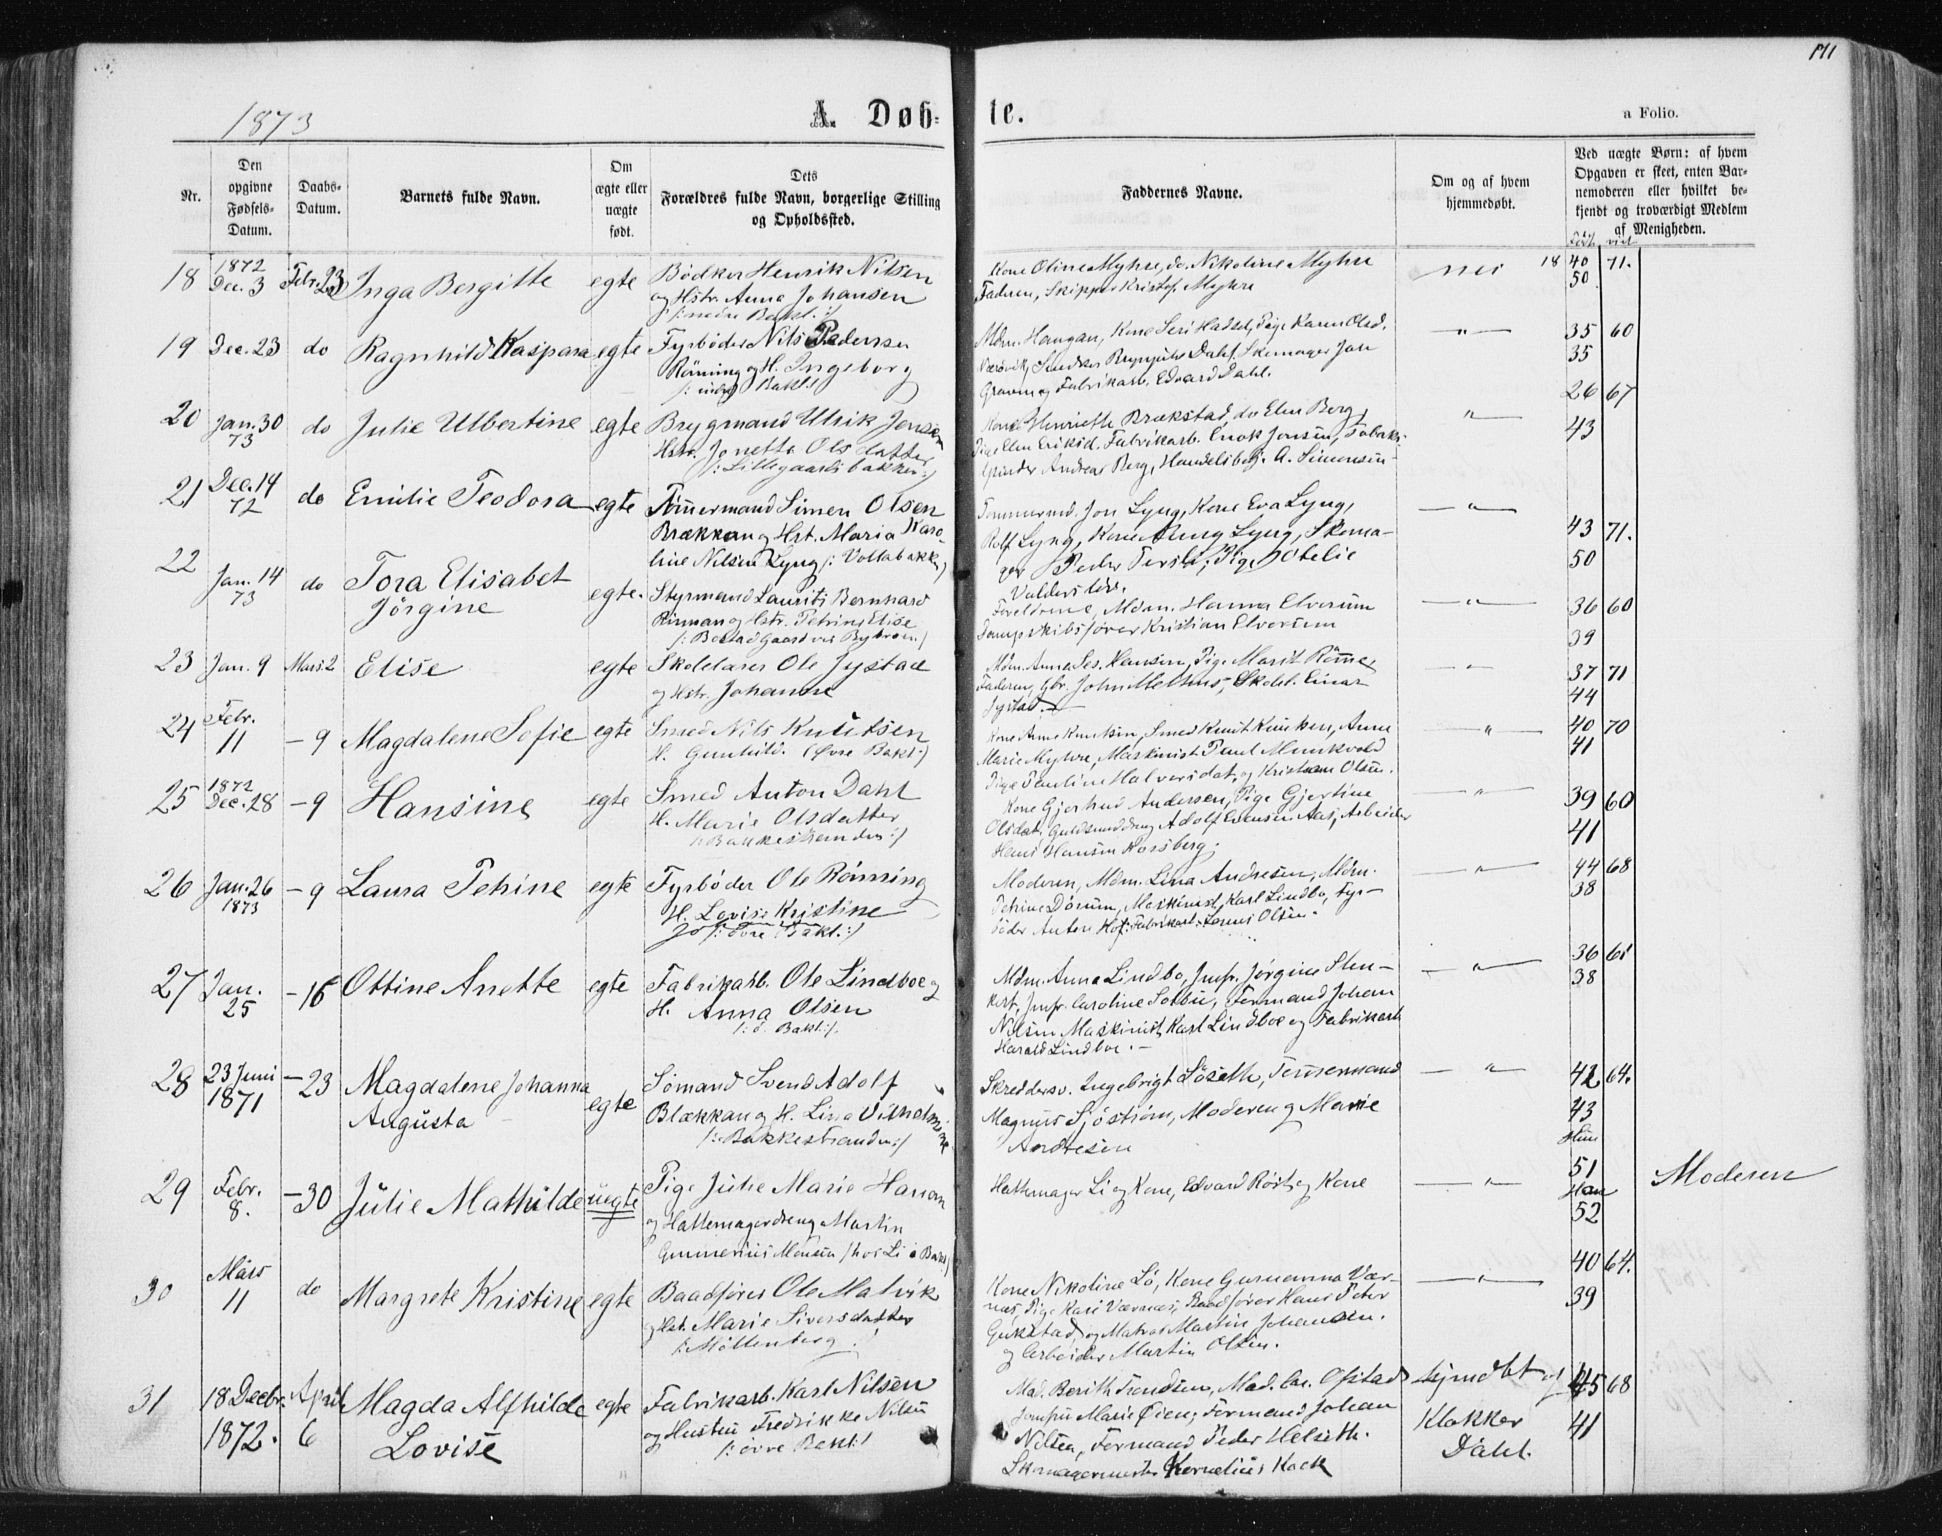 171
1873
A. Døb-
te.
a Folio.
Nr.
Den opgivne Fødsels-Datum.
Daabs-Datum.
Barnets fulde Navn.
Om ægte eller uægte født.
Dets Forældres fulde Navn, borgerlige Stilling og Opholdssted.
Faddernes Navne.
Om og af hvem hjemmedøbt.
Ved uægte Børn: af hvem Opgaven er skeet, enten Barnemoderen eller hvilket bekjendt og troværdigt Medlem af Menigheden.
18 1872 Dec. 3 Febr. 23 Inga Bergitte egte Bødker Henrik Nilsen
og Hstr. Anna Johansen
/: nedre Bakl.:/
Kone Oline Myhre, do. Nikoline Myhre
Faderen, Skipper Kristof. Myhre
nei 18 40 71.
50
19 Dec. 23 do Ragnhild Kaspara egte Fyrbøder Nils Pedersen
Rönning og H. Ingeborg
Mdm. Haugan, Kone Seri Hadsel, Pige Karen Olsd.
Skomager Jon
og Fabrikarb. Edvard Dahl.
" 35 60
35
20 Jan. 30 73 do Julie Ulbertine egte Brygmand Ulrik Jensen
Hstr. Jonetta Olsdatter
/: Lillegaardsbakken :/
Kone Henriette Brækstad, do Elen Berg,
Pige Elen Eriksd. Fabrikarb. Enok Jonsen, Tobaks-
spinder Andreas Berg, Handelsbetj. A. Simonsen
" 26 67
43
21 Dec. 14 72 do Emilie Teodora egte Tømmermand Simen Olsen
Brækkan og Hst. Maria Karo-
line Nilsen Lyng /: Vollabakk:/
Tømmermd. Jon Lyng, Kone Eva Lyng,
Rolf Lyng, Kone Lyng, Skoma-
ger Peder Pige Otelie
" 43 71.
50
22 Jan. 14 73 do Tora Elisabet
Jörgine
egte. Styrmand Laurits Bernhard
og Hstr. Petrine Elise
Foreldrene, Mdm. Hanna Elverum
Dampskibsfører Kristian Elverum
" 36 60
39
23 Jan. 9 Mars 2 Elise egte Skolelærer Ole Jystad
og Hstr. Johanne
Mdm. Anne Hansen, Pige Marit Römme,
Faderen, Gbr. John Skolel. Einar
Jystad.
" 37 71
44
24 Febr. 11 – 9 Magdalene Sofie egte Smed Nils Knutsen
H. Gunhild. (Øvre Bakl:)
Kone Anne Knutsen, Smed Knut Knutsen, Anne
Marie Myhre, Maskinist Paul Munkvold
Pige Pauline Halvorsdat, og Kristian Olsen.
" 40 70
41
25 1872 Dec. 28 – 9 Hansine egte Smed Anton Dahl
H. Marie Olsdatter
/: Bakkestranden :/
Kone Gjertrud Andersen, Pige Gjertine
Olsdat, Guldsmeddreng Adolf Evensen Aas, Arbeider
Hans Hansen Korsberg.
" 39 60
41
26 Jan. 26 1873 – 9 Laura Petrine egte Fyrbøder Ole Rönning
H. Lovise Kristine
/: Øvre Bakl.:/
Moderen, Mdm. Lina Andresen, Mdm.
Petrine Dörum, Maskinist Karl Lindbo, Fyr-
bøder Anton Hof: Fabrikarb. Olsen.
" 44 68
38
27 Jan. 25 – 16 Ottine Anette egte Fabrikarb. Ole Lindboe og
H. Anna Olsen
/: ö. Bakl:/.
Mdm. Anna Lindbo, Jmfr. Jörgine Sten-
Jmfr. Caroline Formand Johan
Nilsen Maskinist Karl Lindboe og Fabrikarb
Harald Lindboe. –
" 36 61
38
28 23 Juni 1871 – 23 Magdalene Johanna
Augusta
egte Sömand Svend Adolf
Blækkan og H. Lina Vilhelmine
/: Bakkestranden :/
Skreddersv. Ingebrigt Löseth, Tømmermand
Magnus Sjöström, Moderen og Marie
Andresen
" 42 64.
43
29 Febr. 8. – 30 Julie Mathilde uegte Pige Julie Marie Hansen
og Hattemagerdreng Martin
Gunnerius Monsen /hos Li i Bakl/
Hattemager Li og Kone, Edvard og Kone
" Hun 51
Han 52
Moderen
30 Mars 11 do Margrete Kristine egte Baadfører Ole Malvik
og Hst. Marie Siversdatter
/: Möllenberg :/
Kone Nikoline Lö, Kone Gurianna Vær-
næs, Pige Kari Værnæs, Baadfører Hans Peter
Gukstad, og Matros Martin Johansen.
og Arbeider Martin Olsen.
" 40 64.
39
31 18 Decbr. 1872. April 6 Magda Alfhilde
Lovise
egte Fabrikarb. Karl Nilsen
og Hustru Fredrikke Nilsen
/: øvre Bakl:/
Mad. Berith Trondsen, Mad. Opstad
Jomfru Marie Øien, Formand Johan
Nilsen, Formand Peder Helseth.
Skomagermester Kornelius Kock
hjmdbt af
Klokker
Dahl.
45 68
41